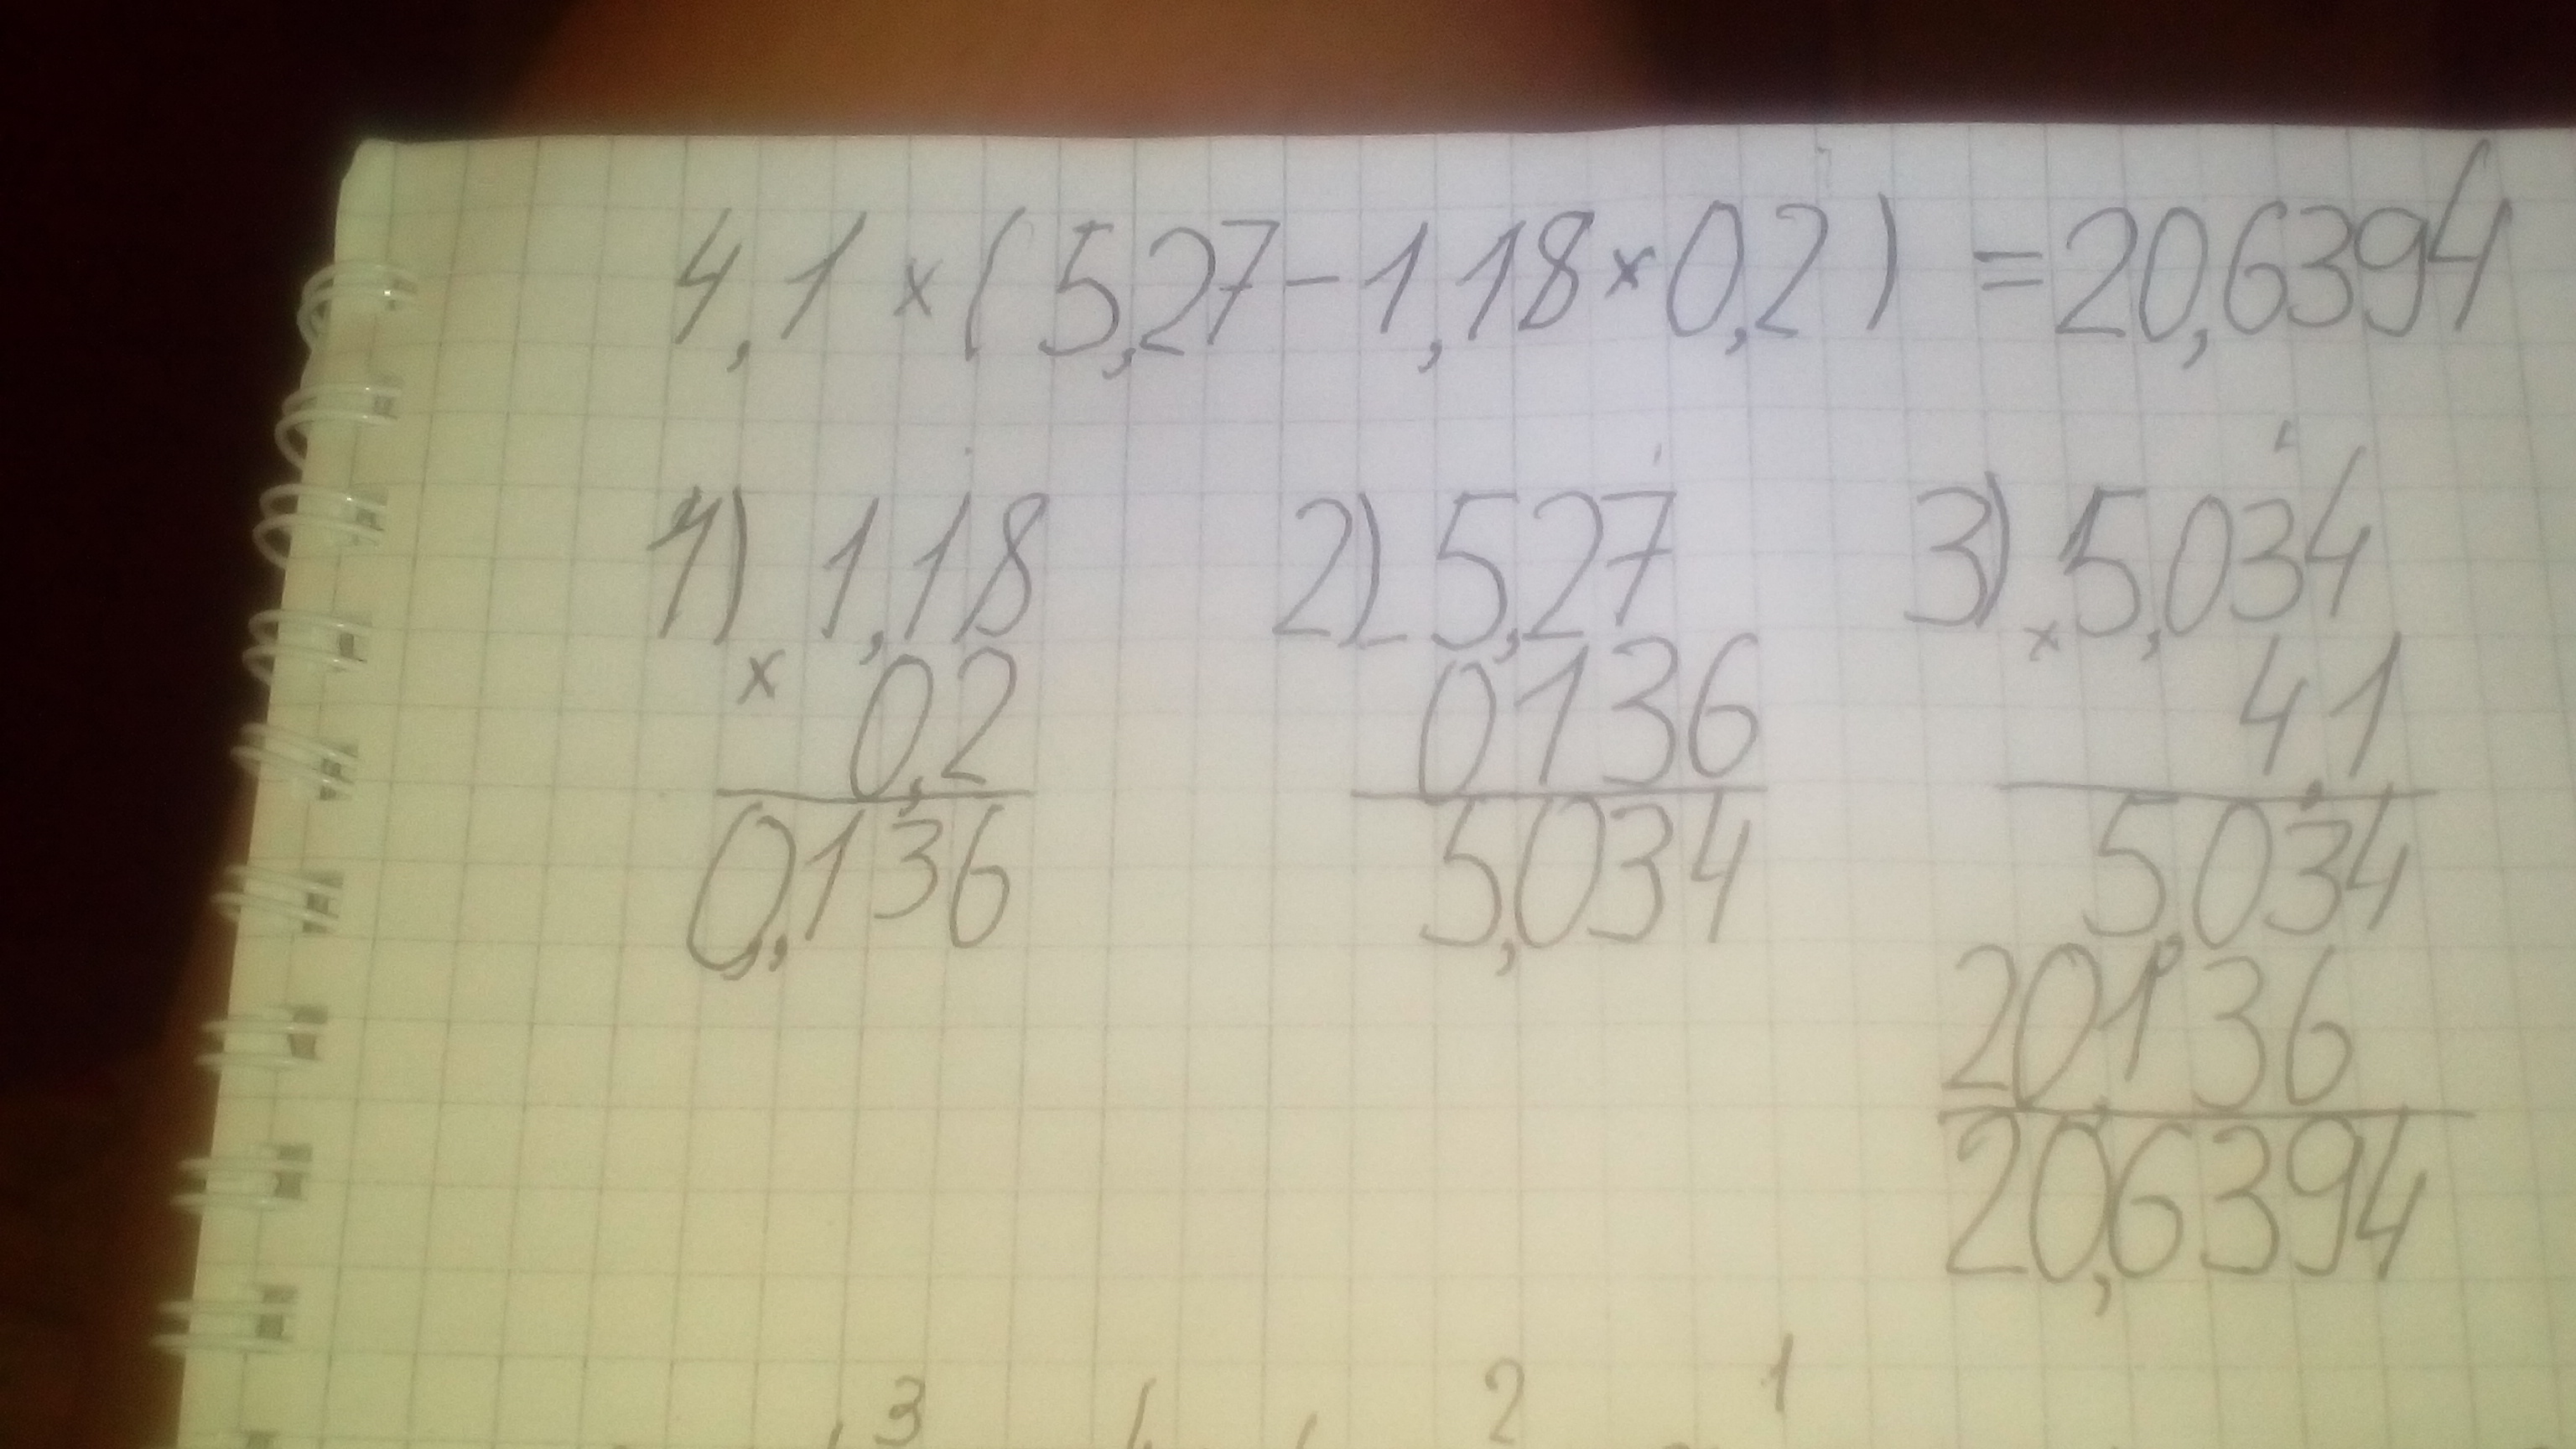 4,1 × ( 5,27 - 1,18 × 0,2 ) = 20,6394
1) × 1,18
0,2
0,136
2) - 5,27
0,136
5,034
3) × 5,034
4,1
5,034
20136
20,6394
3 2 1